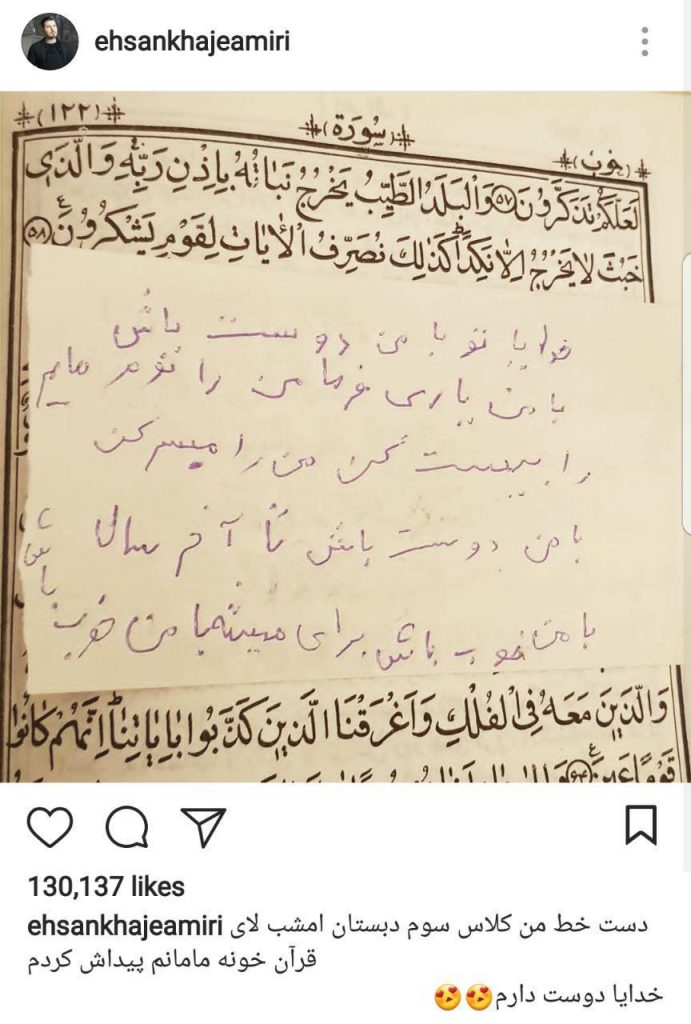 ehsankhajeamiri
(۱۲۲)
سورة
خوب
لَعَلَّكُمْ تَذَكَّرُونَ ۵۷ وَالْبَلَدُ الطَّيِّبُ يَخْرُجُ نَبَاتُهُ بِإِذْنِ رَبِّهِ وَالَّذِي
خَبُثَ لَا يَخْرُجُ إِلَّا نَكِدًا كَذَٰلِكَ نُصَرِّفُ الْآيَاتِ لِقَوْمٍ يَشْكُرُونَ ۵۸
خدایا تو با من دوست باش
با من یاری فرما من را نوم هایم
را بیست کن من را میسر کن
با من دوست باش تا آخر سال
با من خوب باش برای همیشه با من خوب باش
وَالَّذِينَ مَعَهُ فِي الْفُلْكِ وَأَغْرَقْنَا الَّذِينَ كَذَّبُوا بِآيَاتِنَا إِنَّهُمْ كَانُوا
قَوْمًا عَمِينَ ۶۴
130,137 likes
ehsankhajeamiri دست خط من کلاس سوم دبستان امشب لای
قرآن خونه مامانم پیداش کردم
خدایا دوست دارم😍😍